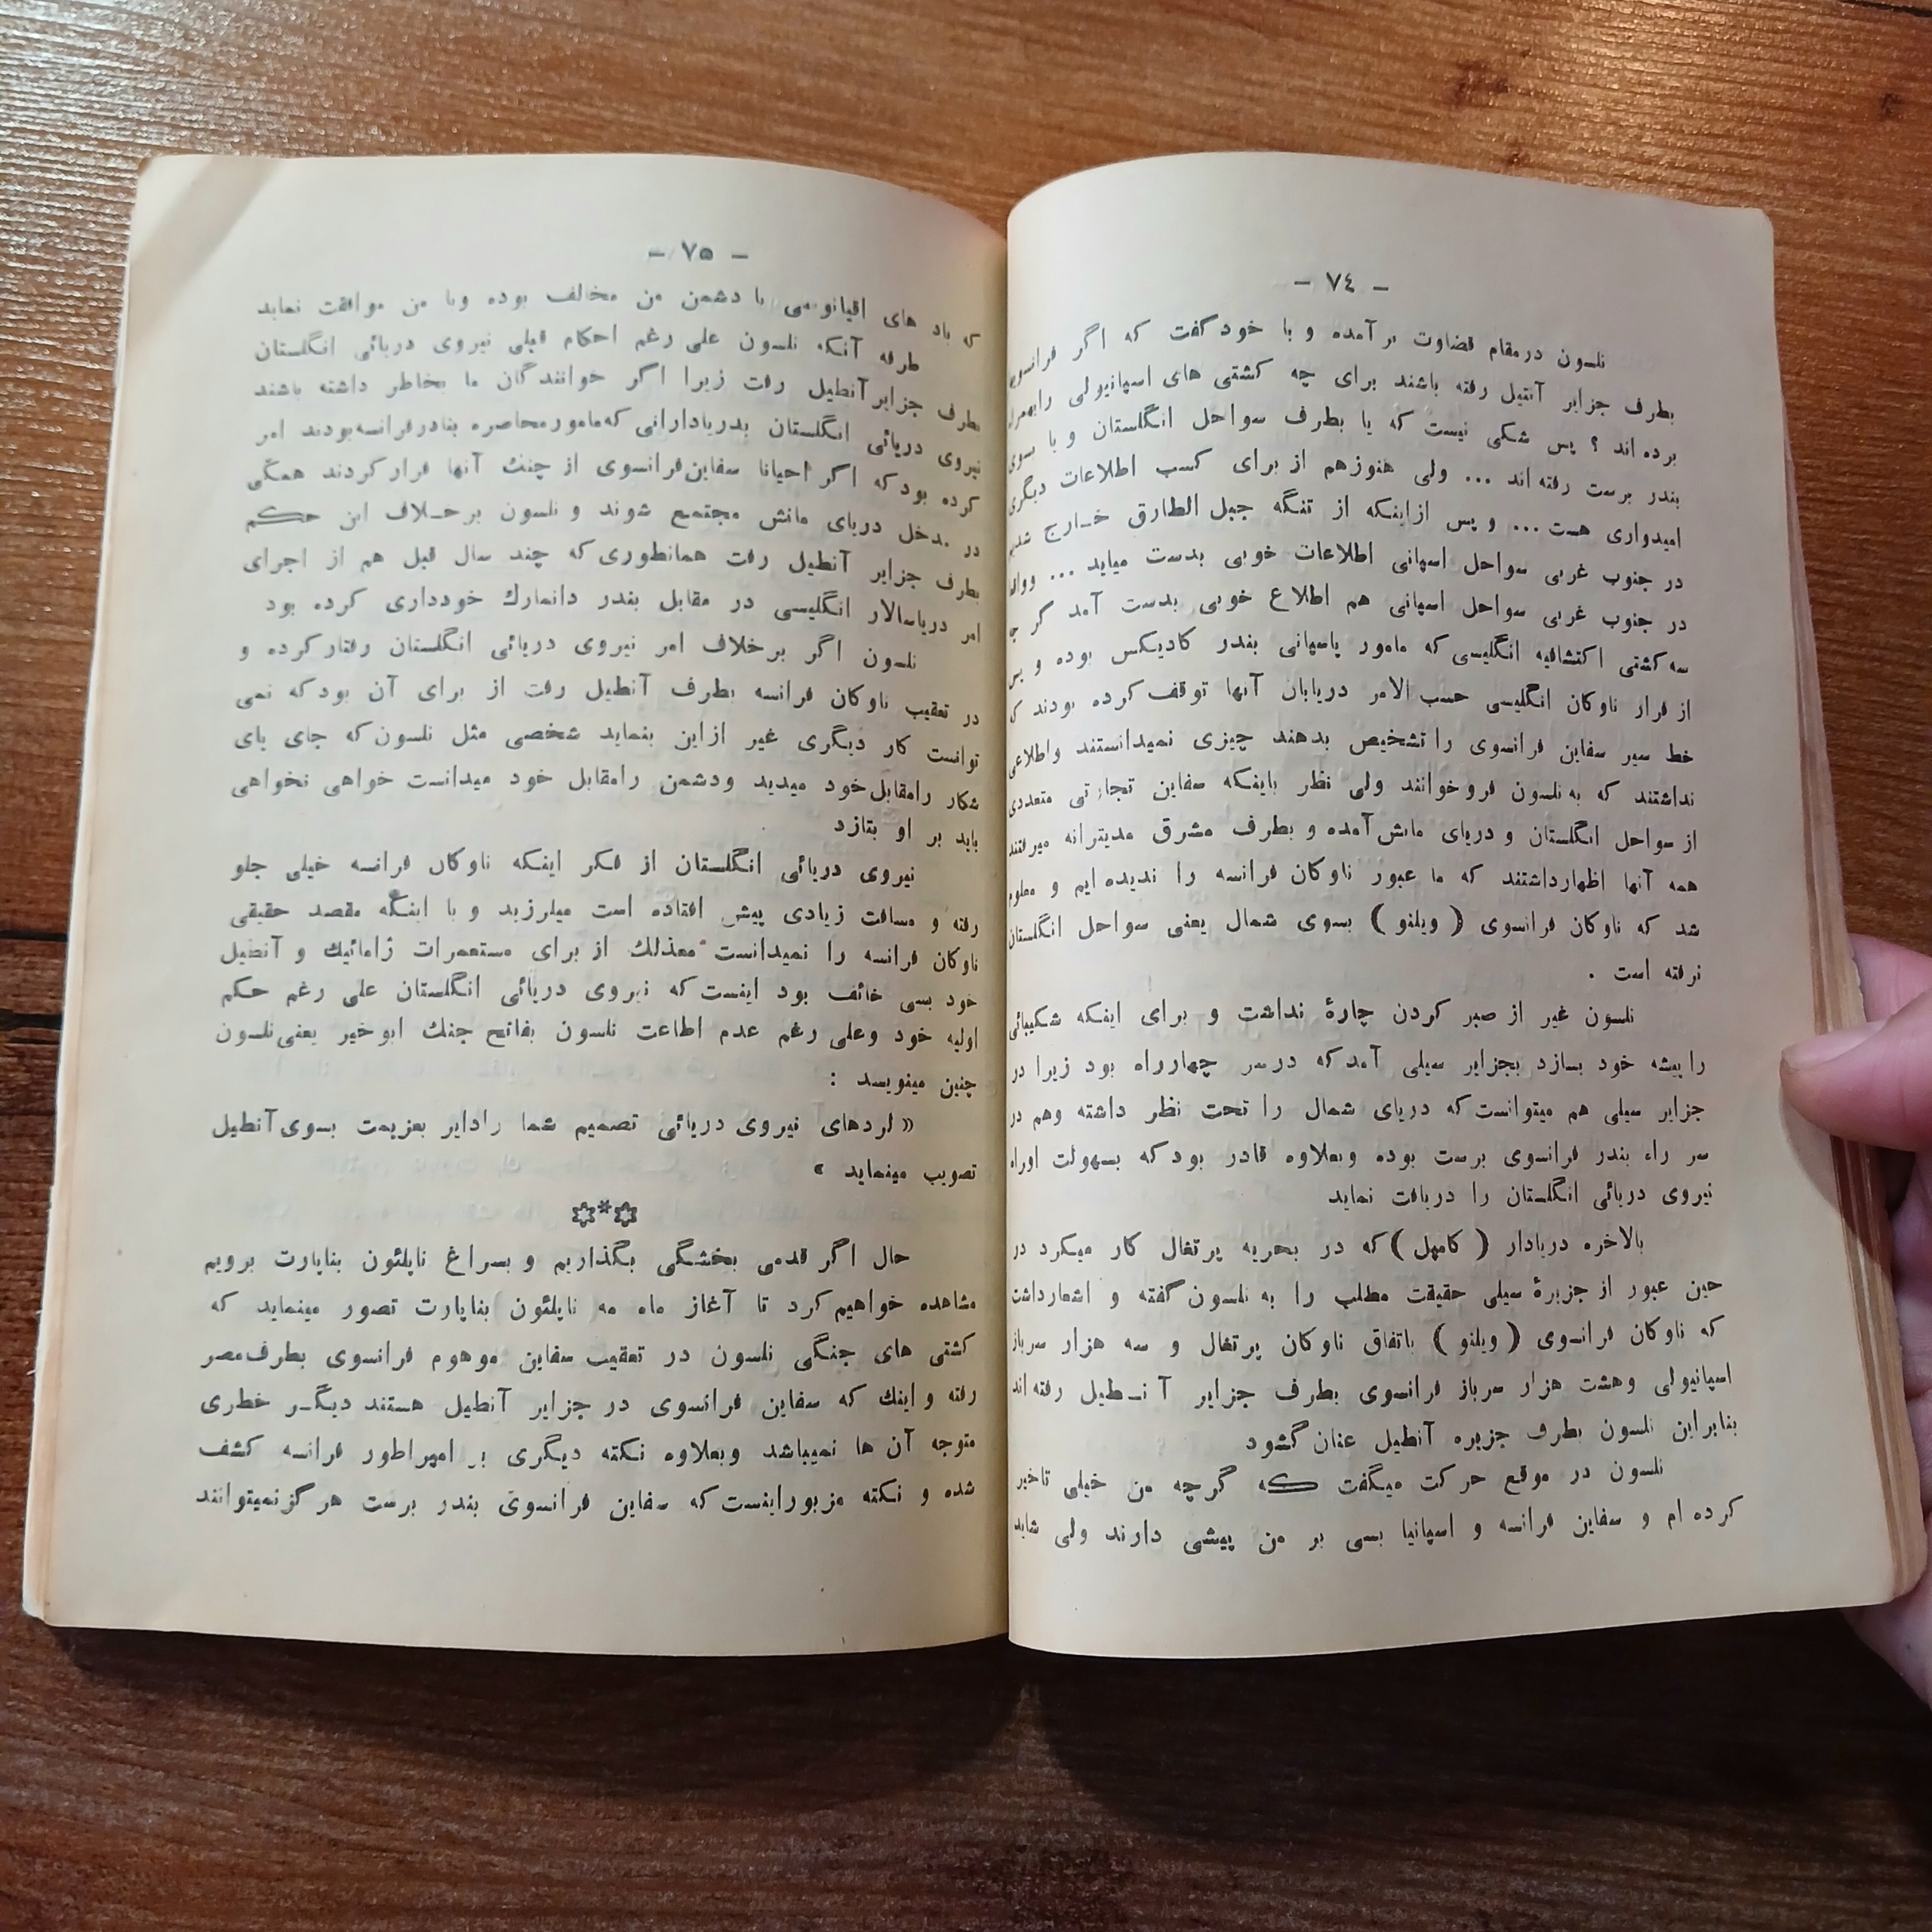 - ٧٤ -
نلسون درمقام قضاوت بر آمده و با خود گفت که اگر فرانسوی
بطرف جزایر آنتیل رفته باشند برای چه کشتی های اسپانیولی رابهمراه
برده اند ؟ پس شکی نیست که یا بطرف سواحل انگلستان و یا بسوی
بندر برست رفته اند ... ولی هنوزهم از برای کسب اطلاعات دیگری
امیدواری هست ... و پس ازاینکه از تنگه جبل الطارق خارج شدیم
در جنوب غربی سواحل اسپانی اطلاعات خوبی بدست میاید ...
در جنوب غربی سواحل اسپانی هم اطلاع خوبی بدست آمد گر چه
سه کشتی اکتشافیه انگلیسی که مامور پاسپانی بندر کادیکس بوده و پس
از فرار ناوکان انگلیسی حسب الامر دریابان آنها توقف کرده بودند که
خط سیر سفاین فرانسوی را تشخیص بدهند چیزی نمیدانستند واطلاعی
نداشتند که به نلسون فروخوانند ولی نظر باینکه سفاین تجارتی متعددی
از سواحل انگلستان و دریای مانش آمده و بطرف مشرق مدیترانه میرفتند
همه آنها اظهارداشتند که ما عبور ناوکان فرانسه را ندیده ایم و معلوم
شد که ناوکان فرانسوی ( ویلنو ) بسوی شمال یعنی سواحل انگلستان
نرفته است .
نلسون غیر از صبر کردن چارهٔ نداشت و برای اینکه شکیبائی
را پیشه خود بسازد بجزایر سیلی آمد که در سر چهارراه بود زیرا در
جزایر سیلی هم میتوانست که دریای شمال را تحت نظر داشته وهم در
سر راه بندر فرانسوی برست بوده وبعلاوه قادر بود که بسهولت اوراه
نیروی دریائی انگلستان را دریافت نماید
بالاخره دریادار ( کامپل ) که در بحریه پرتغال کار میکرد در
حین عبور از جزیرهٔ سیلی حقیقت مطلب را به نلسون گفته و اشعارداشت
که ناوکان فرانسوی ( ویلنو ) باتفاق ناوکان پرتغال و سه هزار سرباز
اسپانیولی وهشت هزار سرباز فرانسوی بطرف جزایر آنـطیل رفته اند
بنابراین نلسون بطرف جزیره آنطیل عنان گشود
نلسون در موقع حرکت میگفت که گرچه من خیلی تاخیر
کرده ام و سفاین فرانسه و اسپانیا بسی بر من پیشی دارند ولی شاید
- ٧٥ -
که باد های اقیانوسی با دشمن من مخالف بوده وبا من موافقت نماید
طرفه آنکه نلسون علی رغم احکام قبلی نیروی دریائی انگلستان
بطرف جزایر آنطیل رفت زیرا اگر خوانندگان ما بخاطر داشته باشند
نیروی دریائی انگلستان بدریادارانی که مامور محاصره بنادر فرانسه بودند امر
کرده بود که اگر احیانا سفاین فرانسوی از چنك آنها فرار کردند همگی
در مدخل دریای مانش مجتمع شوند و نلسون برخـلاف این حکم
بطرف جزایر آنطیل رفت همانطوری که چند سال قبل هم از اجرای
امر دریاسالار انگلیسی در مقابل بندر دانمارك خودداری کرده بود
نلسون اگر برخلاف امر نیروی دریائی انگلستان رفتار کرده و
در تعقیب ناوکان فرانسه بطرف آنطیل رفت از برای آن بود که نمی
توانست کار دیگری غیر ازاین بنماید شخصی مثل نلسون که جای پای
شکار رامقابل خود میدید ودشمن رامقابل خود میدانست خواهی نخواهی
باید بر او بتازد
نیروی دریائی انگلستان از فکر اینکه ناوکان فرانسه خیلی جلو
رفته و مسافت زیادی پیش افتاده است میلرزید و با اینکه مقصد حقیقی
ناوکان فرانسه را نمیدانست معذلك از برای مستعمرات ژامائیك و آنطیل
خود بسی خائف بود اینست که نیروی دریائی انگلستان علی رغم حکم
اولیه خود وعلی رغم عدم اطاعت نلسون بفاتح جنك ابوخیر یعنی نلسون
چنین مینویسد :
« لردهای نیروی دریائی تصمیم شما رادایر بعزیمت بسوی آنطیل
تصویب مینماید »
***
حال اگر قدمی بخشگی بگذاریم و بسراغ ناپلئون بناپارت برویم
مشاهده خواهیم کرد تا آغاز ماه مه ناپلئون بناپارت تصور مینماید که
کشتی های جنگی نلسون در تعقیب سفاین موهوم فرانسوی بطرف مصر
رفته و اینك که سفاین فرانسوی در جزایر آنطیل هستند دیگـر خطری
متوجه آن ها نمیباشد وبعلاوه نکته دیگری بر امپراطور فرانسه کشف
شده و نکته مزبور اینست که سفاین فرانسوی بندر برست هرگز نمیتوانند